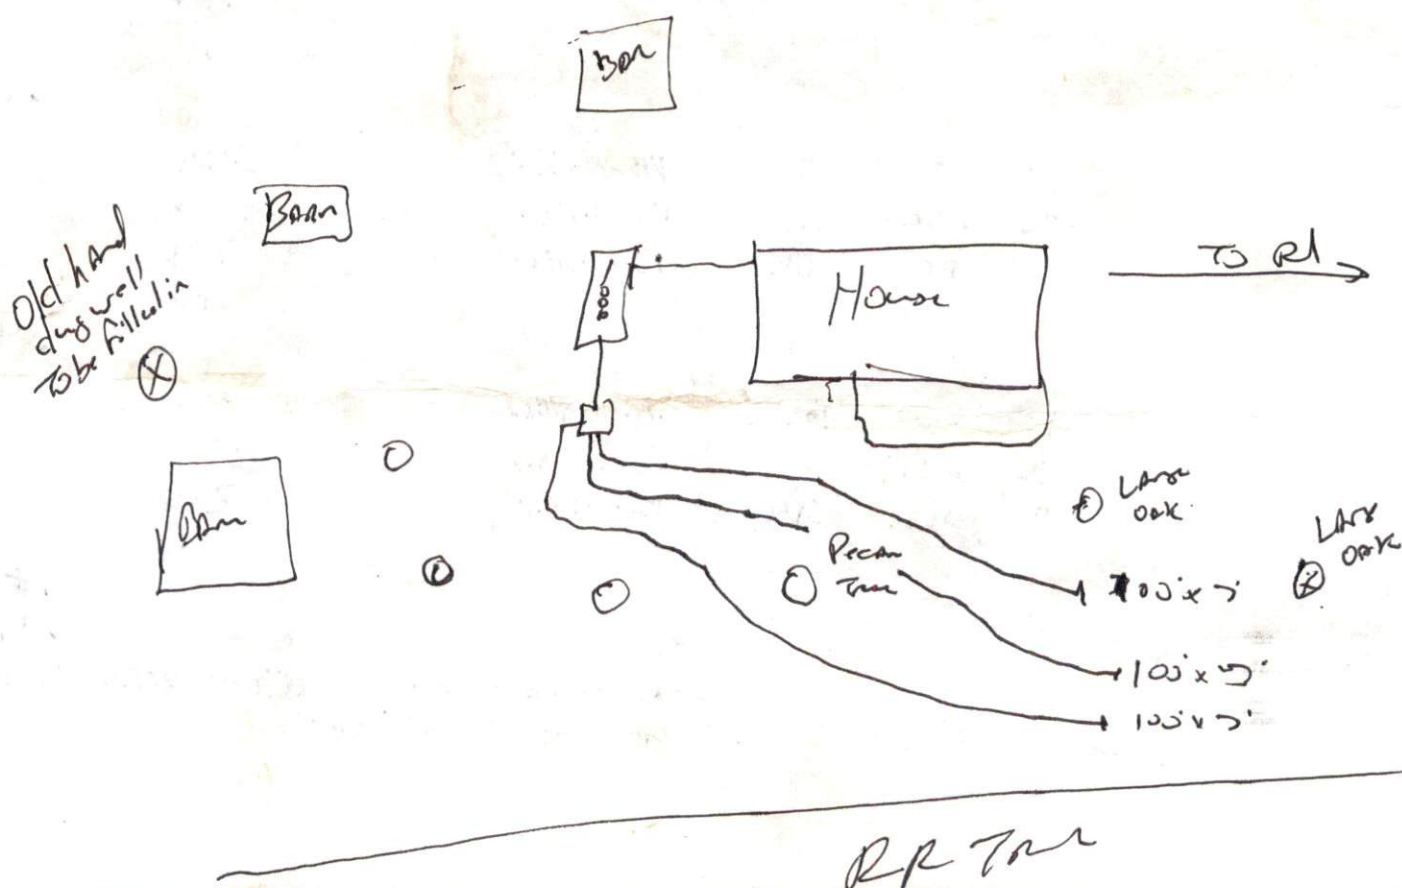 Barn
Barn
Old hand
dug well
To be filled in
1000
House
To Rd
Barn
Large
Oak
Large
Oak
Pecan
Tree
100' x 3'
100' x 3'
RR Trac